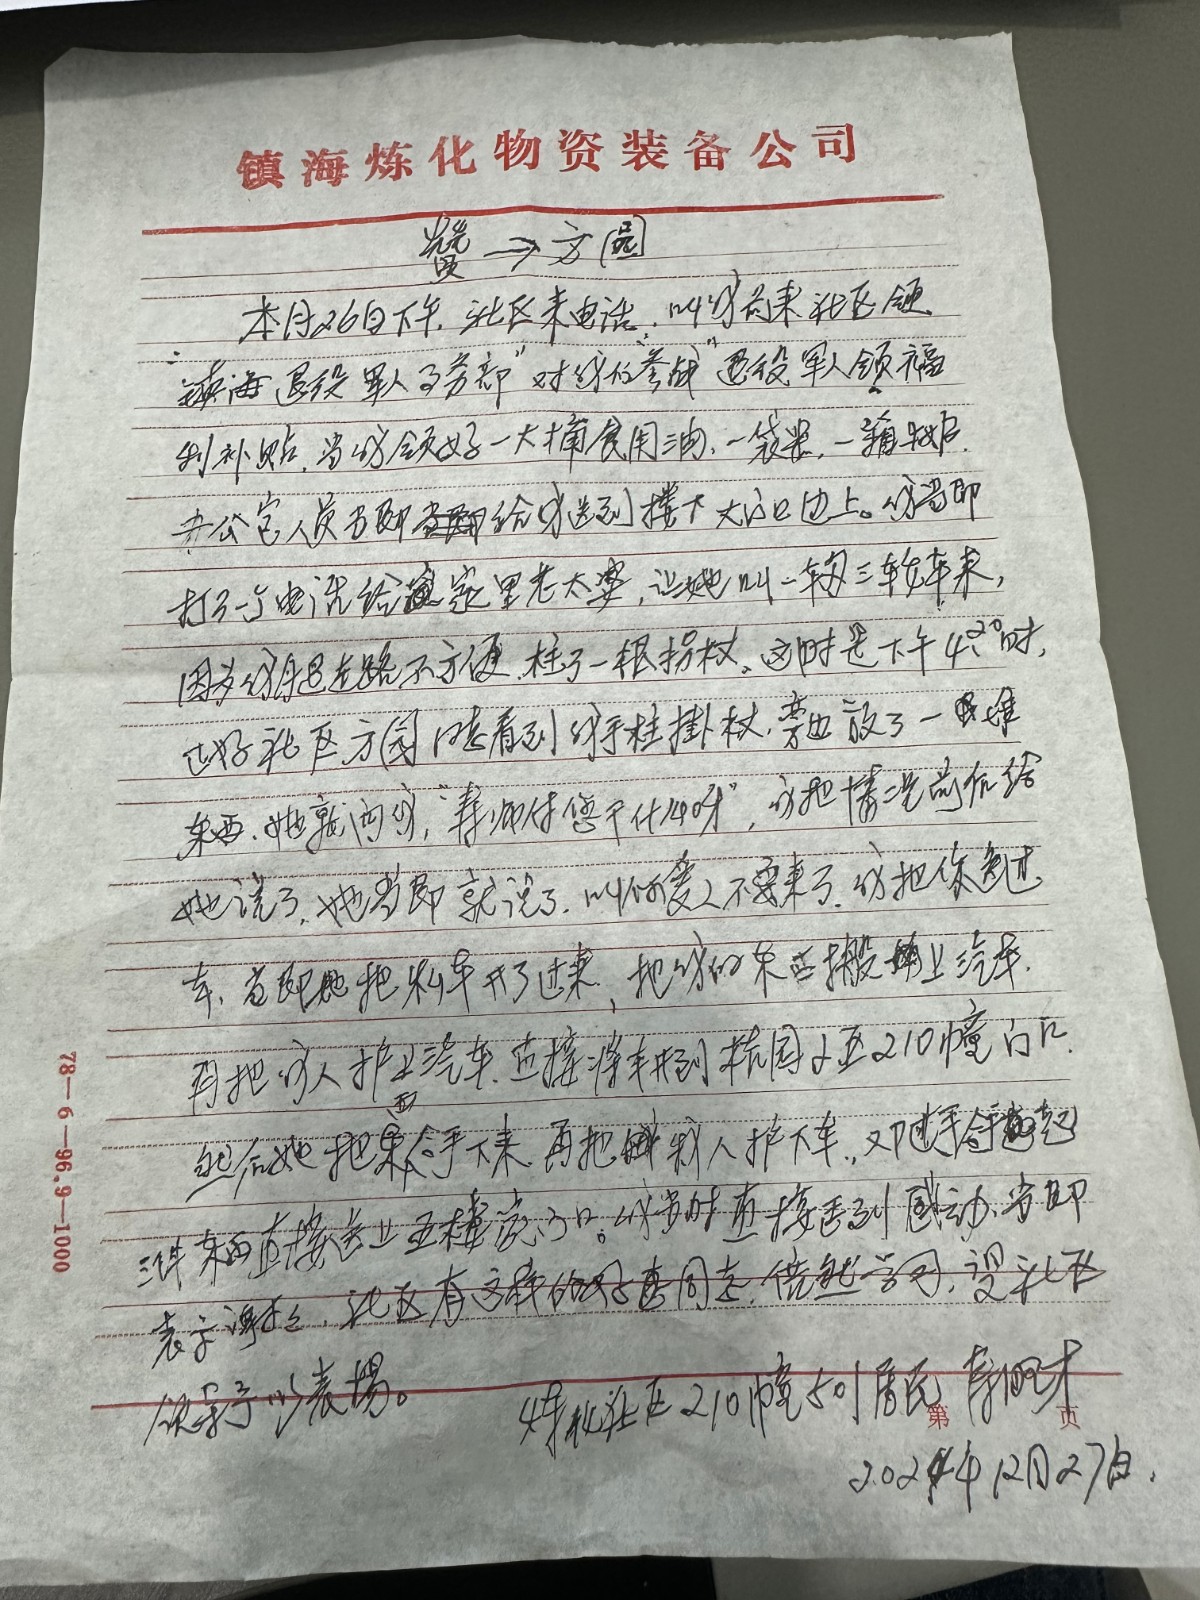 镇海炼化物资装备公司
赞→方园
本月26日下午,社区来电话,叫我前来社区领
镇海退役军人事务部"对我们参战"退役军人领福
利补贴,当我领好一大桶食用油、一袋米,一箱牛奶后.
办公室人员当即给我送到楼下大门口边上。我当即
打了一个电话给家里老太婆,让她叫一辆三轮车来,
因为我自己走路不方便,柱了一根拐杖。这时是下午4:20时,
正好社区方园同志看到我手柱掛杖,旁边放了一堆
东西.她就问我,"师付您干什么呀",我把情况前后给
她说了,她当即就说了.叫你爱人不要来了.我把你送过
去,当即她把私车开了过来,把我的东西搬上汽车.
再把我人护上汽车.直接将车开到桃园小区210幢门口.
然后她把东西拿下来.再把我人护下车,又把手拿起
三件东西直接送上五楼家门口。我当时直接感到感动.当即
表示谢意,社区有这样的好同志,值得学习,望社区
领导予以表扬。
炼化社区210幢501居民
第 页
2024年12月27日.
78—6—96.9—1000